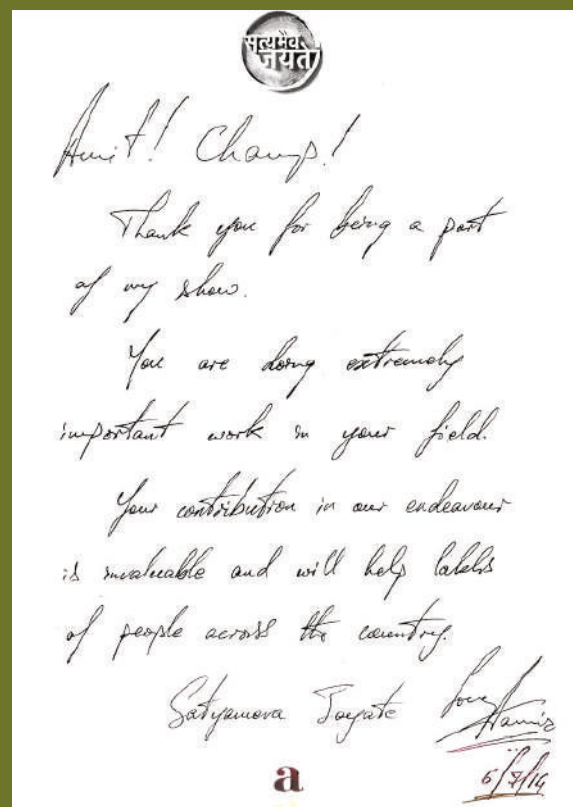 सत्यमेव जयते
Amit! Champ!
Thank you for being a part
of my show.
You are doing extremely
important work in your field.
Your contribution in our endeavour
is invaluable and will help lakhs
of people across the country.
Satyameva Jayate Love
Aamir
6/7/14
a